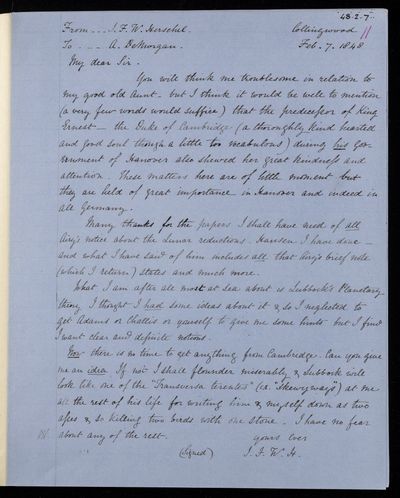 48-2-7
From --- J. F. W. Herschel. Collingwood 11
To --- A. DeMorgan. Feb. 7. 1848
My dear Sir.
You will think me troublesome in relation to
my good old Aunt - but I think it would be well to mention
(a very few words would suffice) that the predecessor of King
Ernest - the Duke of Cambridge (a thoroughly kind hearted
and good soul though a little too vocabulous) during his Gov-
-vernment of Hanover also shewed her great kindness and
attention. These matters here are of little moment but
they are held of great importance in Hanover and indeed in
all Germany.
Many thanks for the papers I shall have need of all
Airy's notice about the Lunar reductions. Hansen I have done -
and what I have said of him includes all that Airy's brief note
(which I return) states and much more.
What I am after all most at sea about is Lubbock's Planetary
theory I thought I had some ideas about it & so I neglected to
get Adams or Challis or yourself to give me some hints - but I find
I want clear and definite notions.
Now there is no time to get anything from Cambridge. Can you give
me an idea If not I shall flounder miserably & Lubbock will
look like one of the "Transversa tuentes" (i.e. "skewgways") at me
all the rest of his life for writing him & myself down as two
asses & so killing two birds with one stone. I have no fear
about any of the rest.
yours ever
(Signed) J. F. W. H.